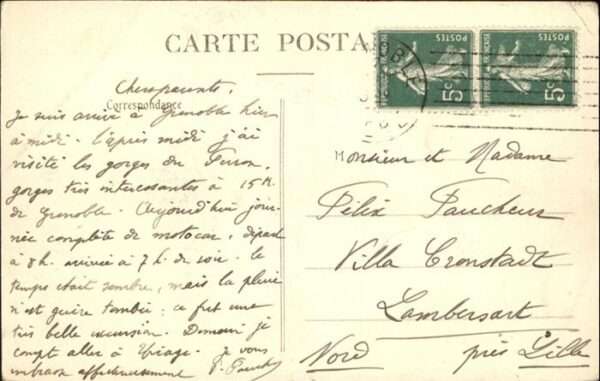 CARTE POSTA
Chers parents,
Correspondance
Je suis arrivé à Grenoble hier
à midi. L'après midi j'ai
visité les gorges du Furon,
gorges très intéressantes à 15 K.
de Grenoble. Aujourd'hui jour-
née complète de motocar, départ
à 8h. arrivée à 7h. de soir. Le
temps était sombre, mais la pluie
n'est guère tombée; ce fut une
très belle excursion. Demain je
compte aller à Uriage. Je vous
embrasse affectueusement
POSTES
5c
POSTES
5c
BLE
Monsieur et Madame
Félix Paucheur
Villa Cronstadt
Lambersart
près Lille
Nord